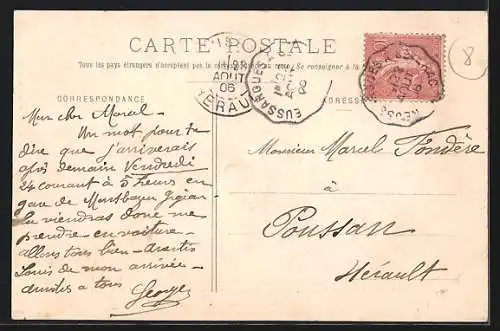 CARTE POSTALE
Tous les pays étrangers n'acceptent pas la correspondance au Se renseigner à la
CORRESPONDANCE
ADRESSE
8
AOUT
06
HERAULT
Mon cher Marcel -
Un mot pour te
dire que j'arriverais
après demain Vendredi
24 courant à 5 heures en
gare de Montbazin Gigean
tu viendras donc me
prendre en voiture -
allons tous bien - Avertis
Louis de mon arrivée -
amitiés a tous
George
Monsieur Marcel Fondère
à
Poussan
Hérault